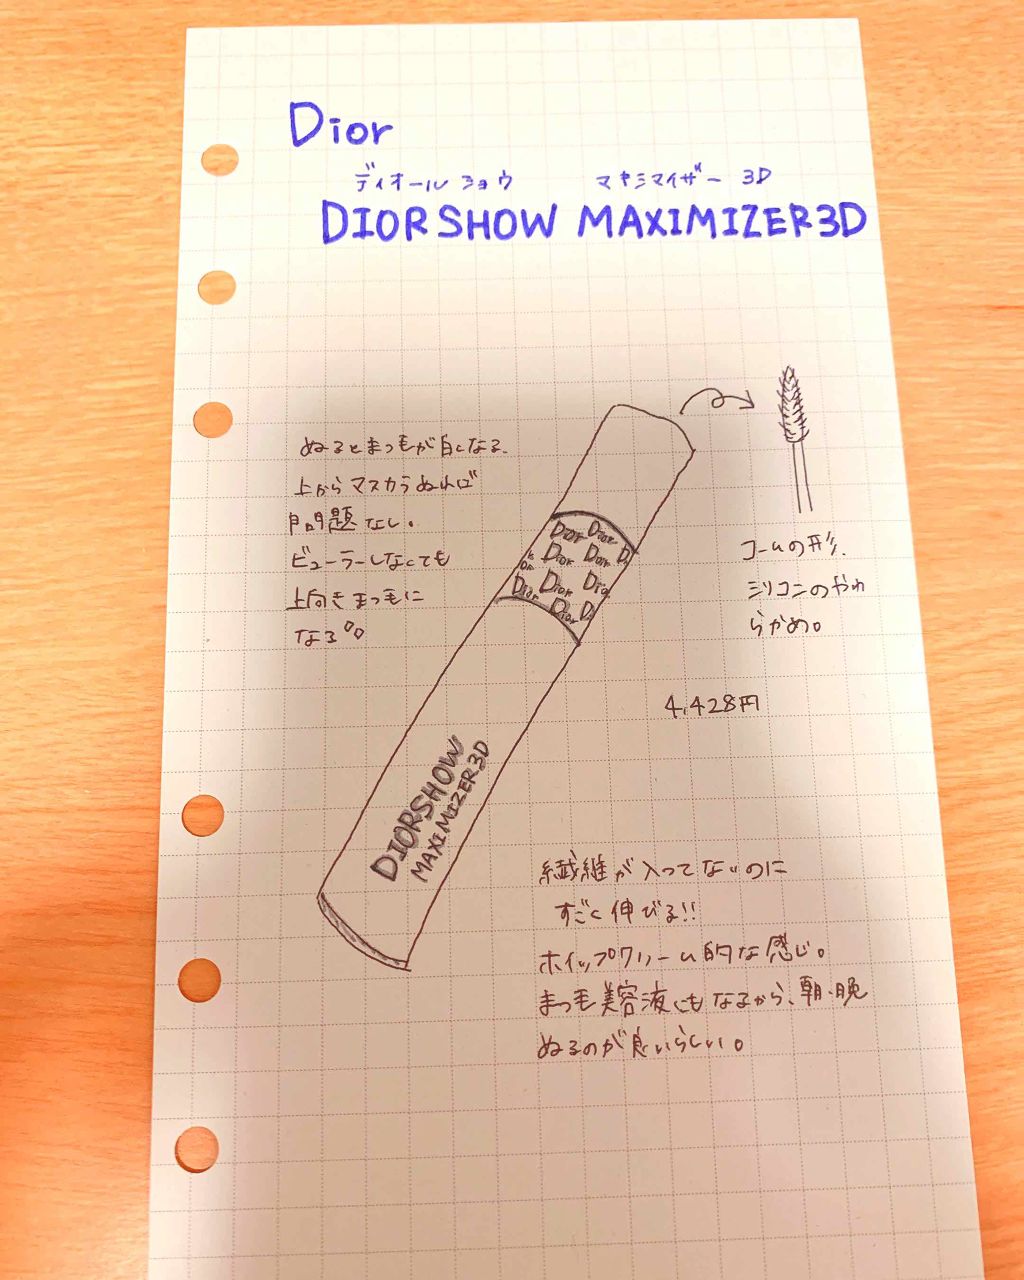 Dior
ディオールショウ マキシマイザー 3D
DIORSHOW MAXIMIZER3D
ぬるとまつ毛が白くなる。
上からマスカラぬれば
問題なし。
ビューラーしなくても
上向きまつ毛に
なる。
Dior Dior
Dior Dior Di
Dior Dio
Dior Dior D
DIORSHOW
MAXIMIZER3D
コームの形。
シリコンのやわ
らかめ。
4,428円
繊維が入ってないのに
すごく伸びる!!
ホイップクリーム的な感じ。
まつ毛美容液にもなるから、朝・晩
ぬるのが良いらしい。